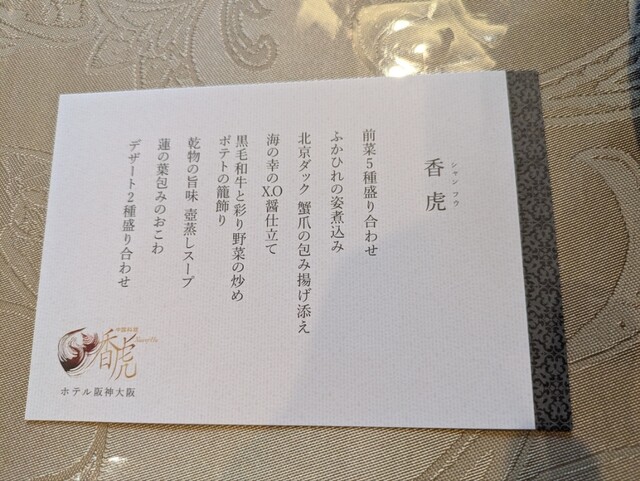 香虎
シャン フウ
前菜5種盛り合わせ
ふかひれの姿煮込み
北京ダック 蟹爪の包み揚げ添え
海の幸のX.O醤仕立て
黒毛和牛と彩り野菜の炒め
ポテトの籠飾り
乾物の旨味 壺蒸しスープ
蓮の葉包みのおこわ
デザート2種盛り合わせ
中国料理
香虎
ホテル阪神大阪